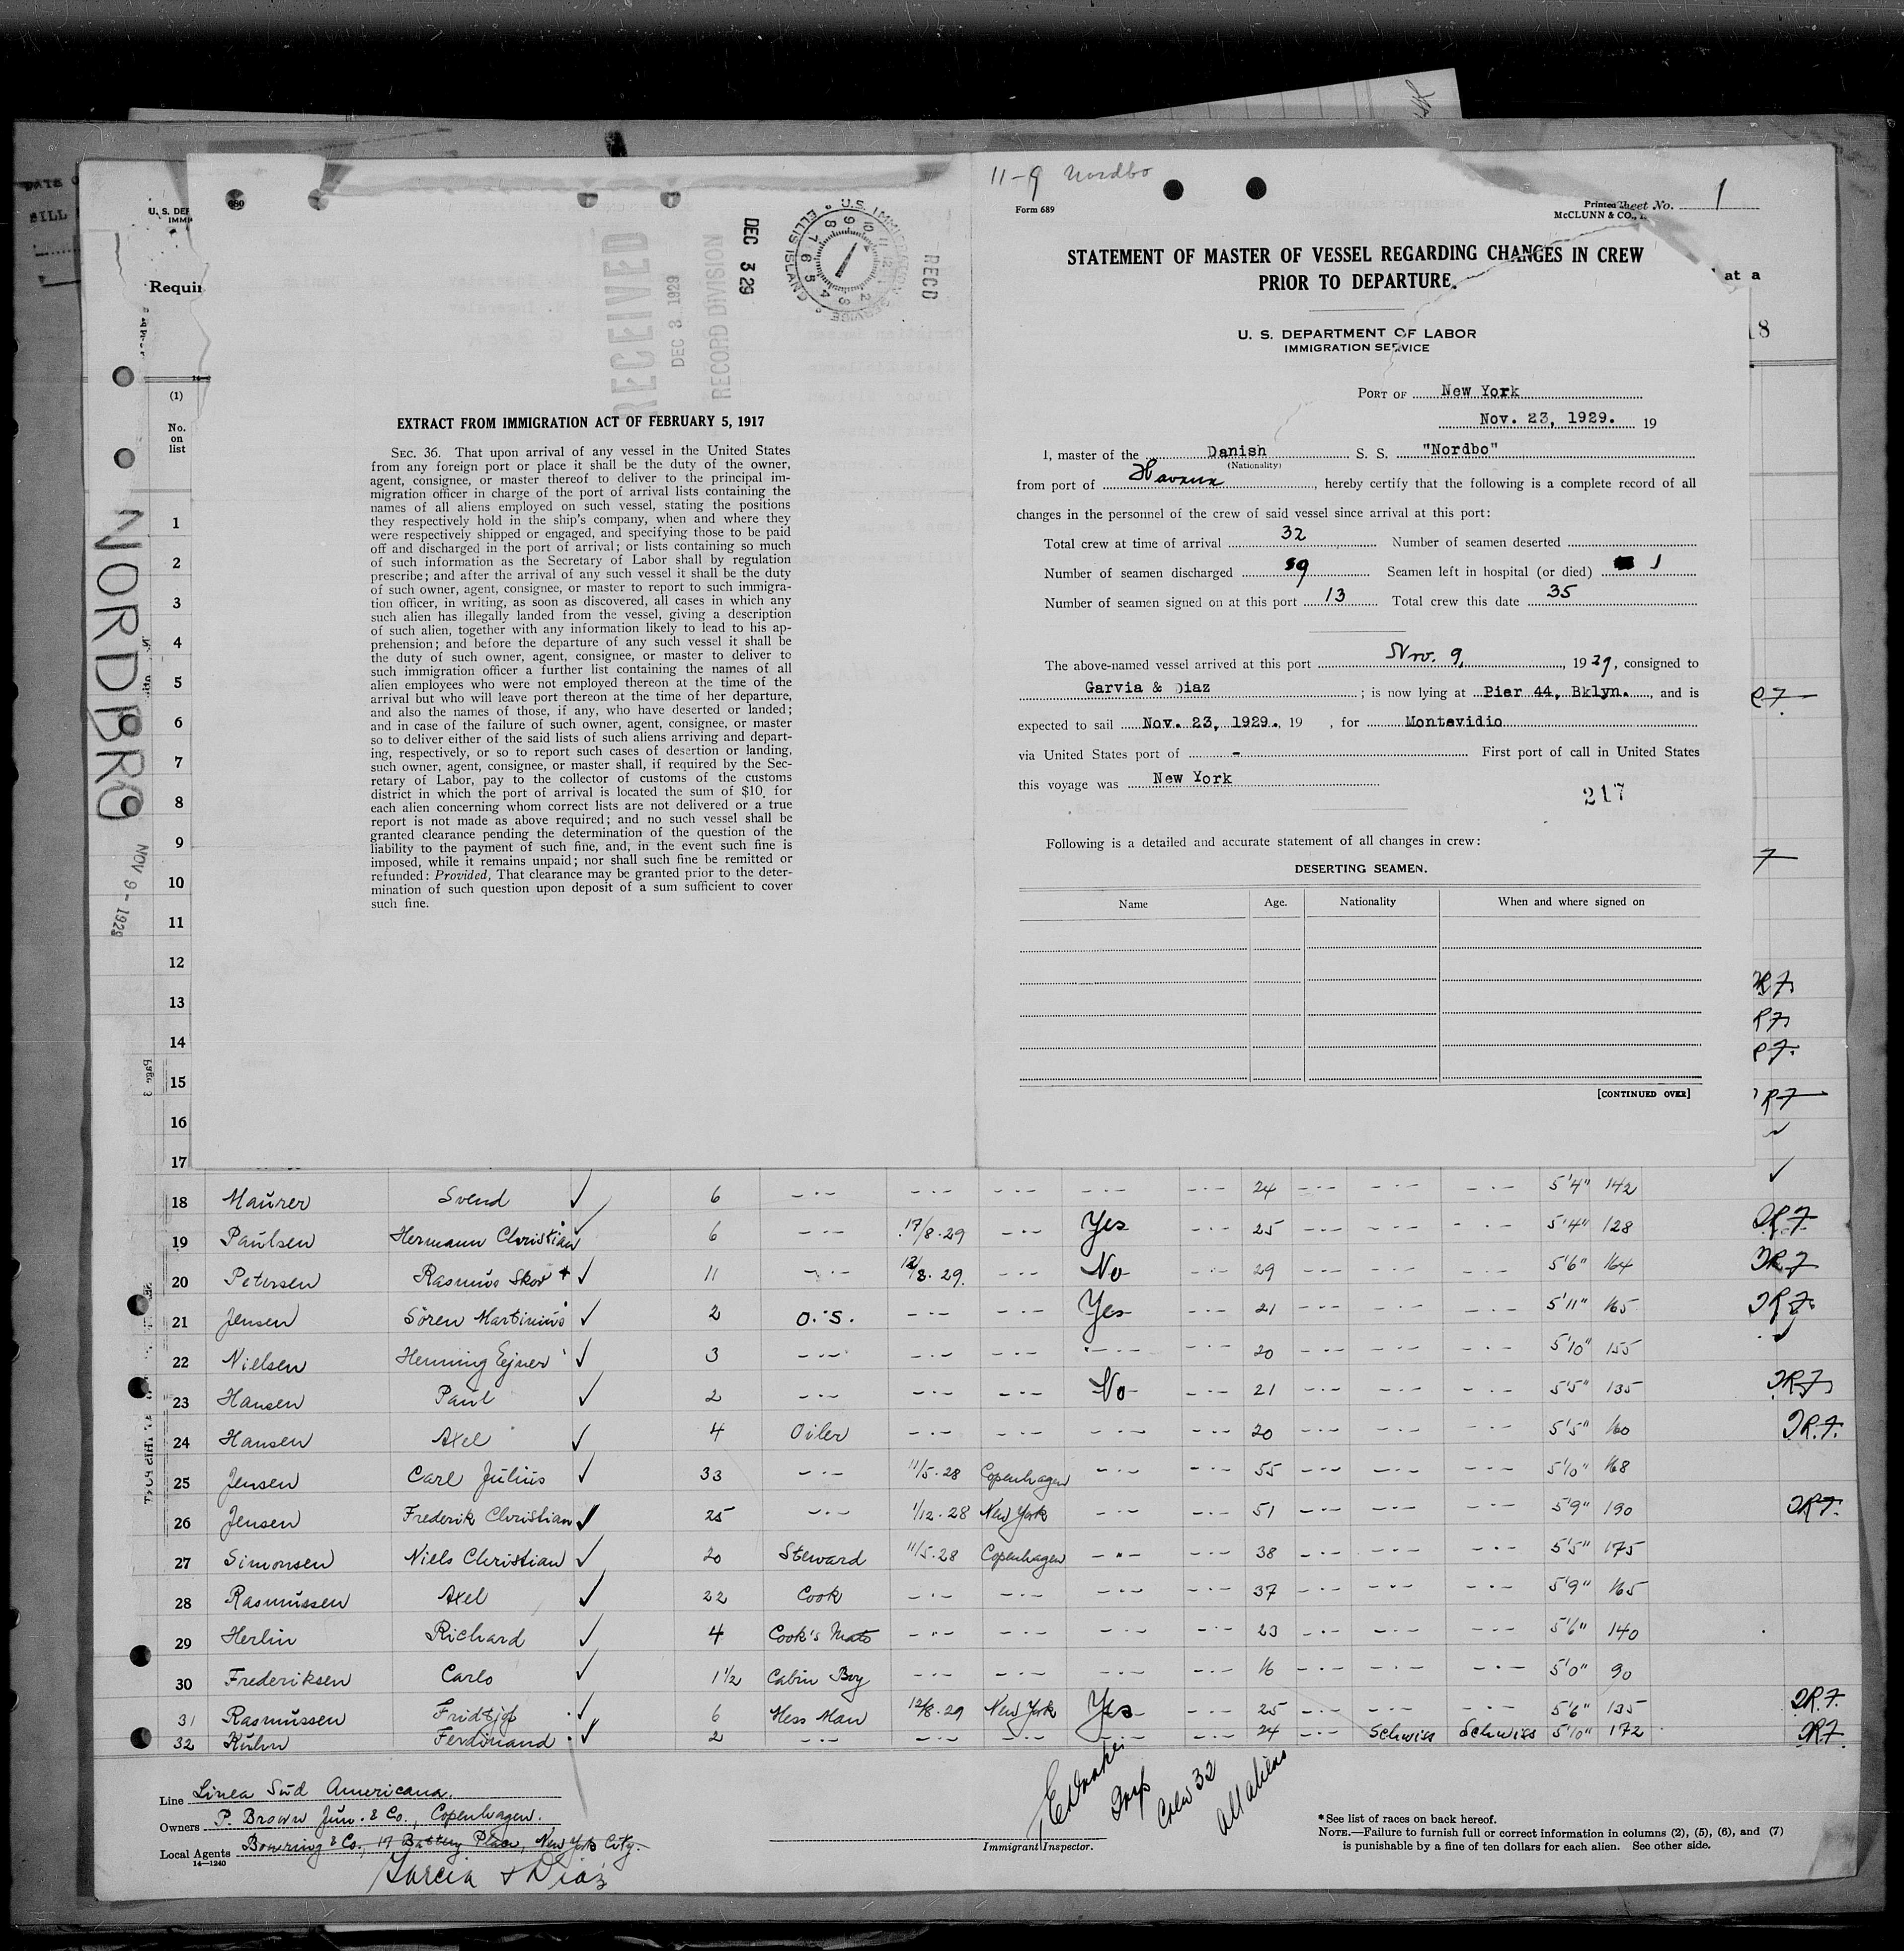 11-9 Nordbo
Form 689
Sheet No. 1
Printed
McCLUNN & CO.,
STATEMENT OF MASTER OF VESSEL REGARDING CHANGES IN CREW
PRIOR TO DEPARTURE.
U. S. DEPARTMENT OF LABOR
IMMIGRATION SERVICE
PORT OF New York
Nov. 23, 1929. 19
I, master of the Danish S. S. "Nordbo"
(Nationality)
from port of Havana, hereby certify that the following is a complete record of all
changes in the personnel of the crew of said vessel since arrival at this port:
Total crew at time of arrival 32 Number of seamen deserted
Number of seamen discharged 9 Seamen left in hospital (or died) 1
Number of seamen signed on at this port 13 Total crew this date 35
The above-named vessel arrived at this port Nov. 9, 1929, consigned to
Garvia & Diaz; is now lying at Pier 44, Bklyn., and is
expected to sail Nov. 23, 1929., 19 , for Montevidio
via United States port of - First port of call in United States
this voyage was New York
217
Following is a detailed and accurate statement of all changes in crew:
DESERTING SEAMEN.
Name Age. Nationality When and where signed on
[CONTINUED OVER]
RECEIVED
DEC 3 1929
RECORD DIVISION
DEC 3 29
U.S. IMMIGRATION SERVICE ELLIS ISLAND
RECD
EXTRACT FROM IMMIGRATION ACT OF FEBRUARY 5, 1917
SEC. 36. That upon arrival of any vessel in the United States
from any foreign port or place it shall be the duty of the owner,
agent, consignee, or master thereof to deliver to the principal im-
migration officer in charge of the port of arrival lists containing the
names of all aliens employed on such vessel, stating the positions
they respectively hold in the ship's company, when and where they
were respectively shipped or engaged, and specifying those to be paid
off and discharged in the port of arrival; or lists containing so much
of such information as the Secretary of Labor shall by regulation
prescribe; and after the arrival of any such vessel it shall be the duty
of such owner, agent, consignee, or master to report to such immigra-
tion officer, in writing, as soon as discovered, all cases in which any
such alien has illegally landed from the vessel, giving a description
of such alien, together with any information likely to lead to his ap-
prehension; and before the departure of any such vessel it shall be
the duty of such owner, agent, consignee, or master to deliver to
such immigration officer a further list containing the names of all
alien employees who were not employed thereon at the time of the
arrival but who will leave port thereon at the time of her departure,
and also the names of those, if any, who have deserted or landed;
and in case of the failure of such owner, agent, consignee, or master
so to deliver either of the said lists of such aliens arriving and depart-
ing, respectively, or so to report such cases of desertion or landing,
such owner, agent, consignee, or master shall, if required by the Sec-
retary of Labor, pay to the collector of customs of the customs
district in which the port of arrival is located the sum of $10 for
each alien concerning whom correct lists are not delivered or a true
report is not made as above required; and no such vessel shall be
granted clearance pending the determination of the question of the
liability to the payment of such fine, and, in the event such fine is
imposed, while it remains unpaid; nor shall such fine be remitted or
refunded: Provided, That clearance may be granted prior to the deter-
mination of such question upon deposit of a sum sufficient to cover
such fine.
U. S. DEP
IMMI
Requir
at a
8
(1)
No.
on
list
1
2
3
4
5
6
7
8
9
10
11
12
13
14
15
16
17
NORDBO
NOV 9 - 1929
Page 3
18 Maurer Svend ✓ 6 24 5'4" 142
19 Paulsen Hermann Christian ✓ 6 17/8.29 Yes 25 5'4" 128
20 Petersen Rasmus Skov ✓ 11 12/8.29. No 29 5'6" 164
21 Jensen Sören Martinius ✓ 2 O.S. Yes 21 5'11" 165
22 Nielsen Henning Ejner ✓ 3 20 5'10" 155
23 Hansen Paul ✓ 2 No 21 5'5" 135
24 Hansen Axel ✓ 4 Oiler 20 5'5" 160
25 Jensen Carl Julius ✓ 33 11/5.28 Copenhagen 55 5'10" 168
26 Jensen Frederik Christian ✓ 25 1/12.28 New York 51 5'9" 190
27 Simonsen Niels Christian ✓ 20 Steward 11/5.28 Copenhagen 38 5'5" 175
28 Rasmussen Axel ✓ 22 Cook 37 5'9" 165
29 Herlin Richard ✓ 4 Cook's Mate 23 5'6" 140
30 Frederiksen Carlo ✓ 1½ Cabin Boy 16 5'0" 90
31 Rasmussen Fridtjof ✓ 6 Mess Man 12/8.29 New York Yes 25 5'6" 135
32 Kuhn Ferdinand ✓ 2 24 Schwiss Schwiss 5'10" 172
Line Linea Sud Americana.
Owners P. Brown Jun. & Co., Copenhagen.
Local Agents Bowring & Co., 17 Battery Place, New York City.
14—1240
Garcia & Diaz
Crew 32
all aliens
Immigrant Inspector.
*See list of races on back hereof.
NOTE.—Failure to furnish full or correct information in columns (2), (5), (6), and (7)
is punishable by a fine of ten dollars for each alien. See other side.